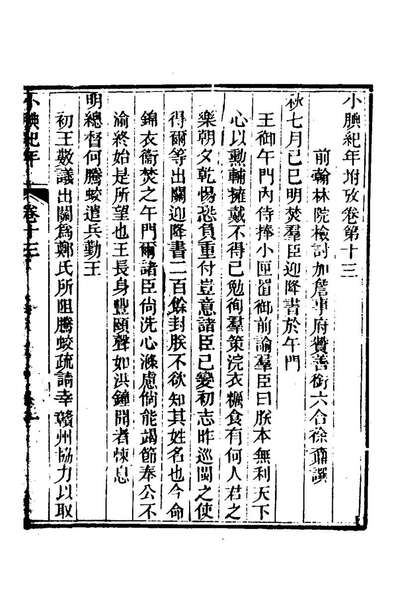 小腆紀年附攷卷第十三
前翰林院檢討加詹事府贊善銜六合徐鼒譔
秋七月己巳明焚羣臣迎降書於午門
王御午門內侍捧小匣置御前諭羣臣曰朕本無利天下
心以勳輔擁戴不得已勉徇羣策浣衣糲食有何人君之
樂朝夕乾惕恐負重付豈意諸臣已變初志昨巡閩之使
得爾等出關迎降書二百餘封朕不欲知其姓名也今命
錦衣衞焚之午門爾諸臣尙洗心滌慮倘能竭節奉公不
渝終始是所望也王長身豐頤聲如洪鐘聞者悚息
明總督何騰蛟遣兵勤王
初王敬議出關為鄭氏所阻騰蛟疏請幸贛州協力以取
小腆紀年
卷十三